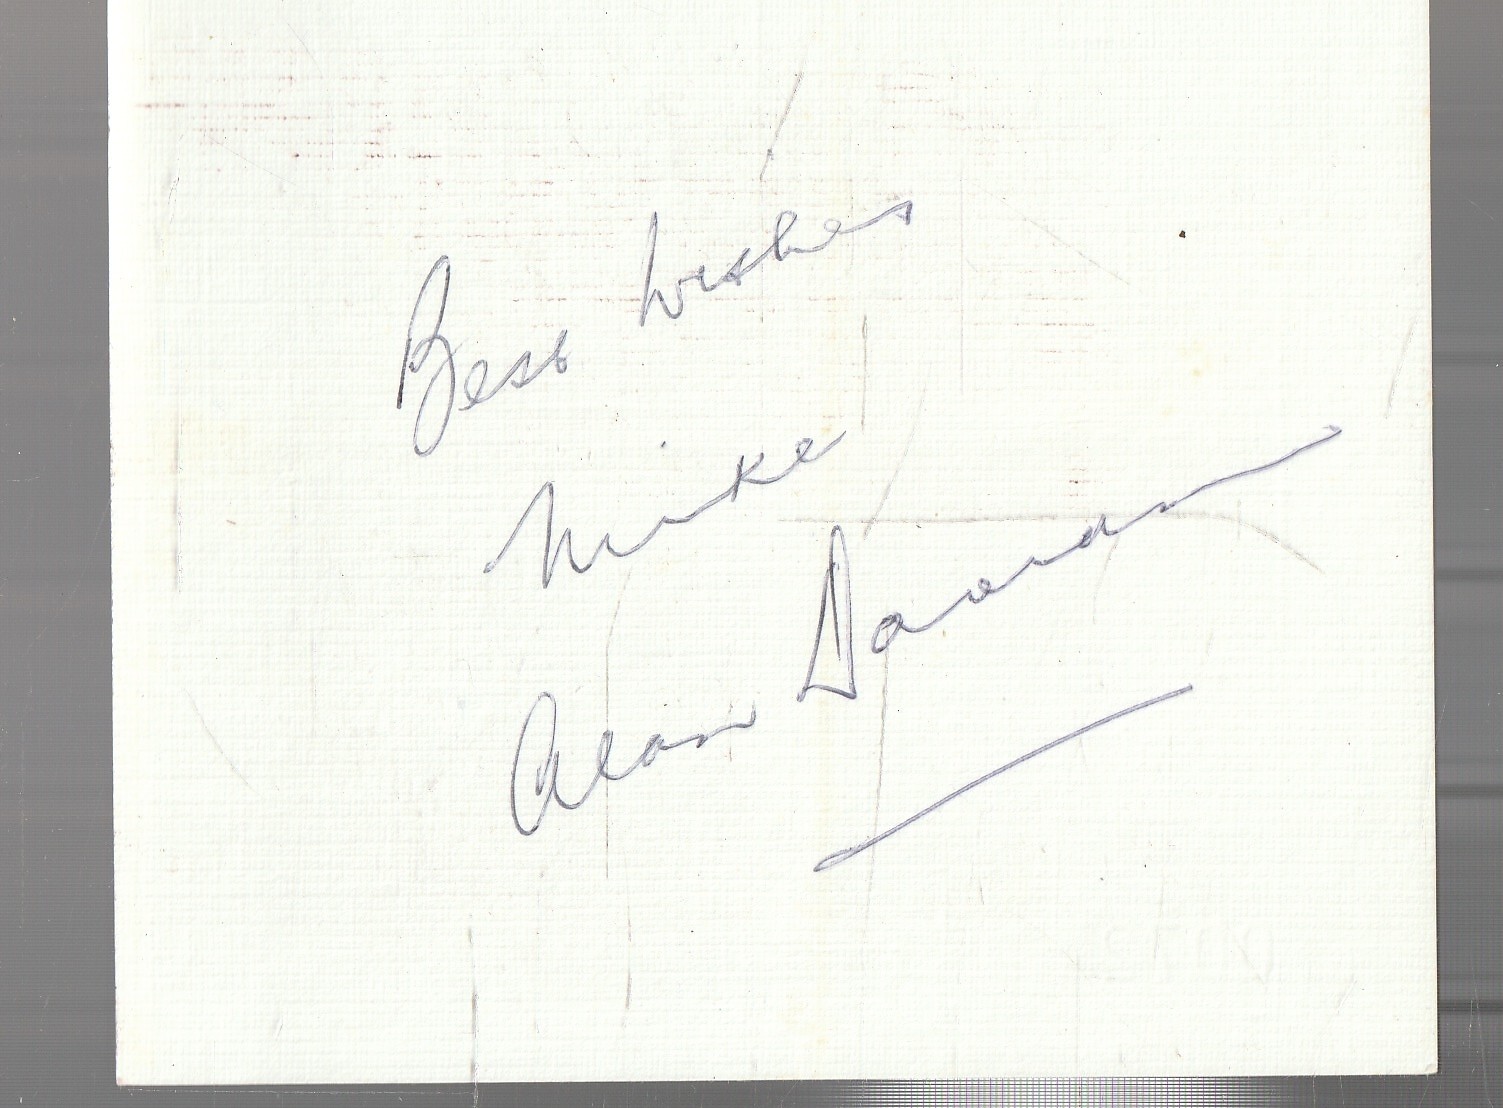 Best Wishes
Mike
Alan